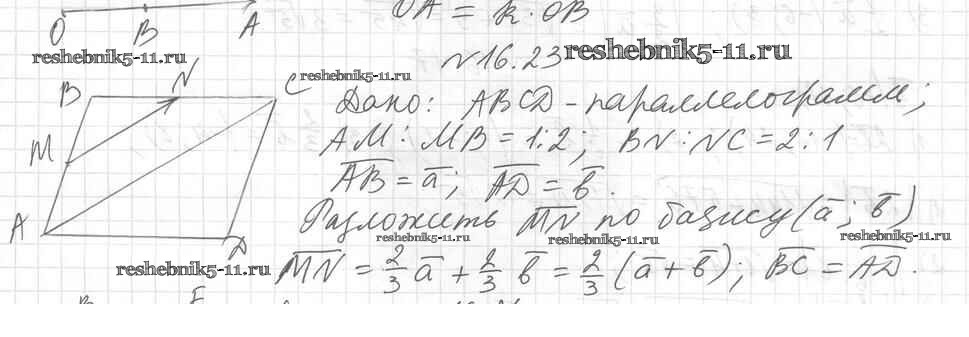 O B A OA = k·OB
reshebnik5-11.ru
№16.23 reshebnik5-11.ru
reshebnik5-11.ru
B N C
M
A D
Дано: ABCD - параллелограмм;
AM : MB = 1:2; BN : NC = 2:1
A̅B̅ = a̅; A̅D̅ = b̅.
Разложить M̅N̅ по базису (a̅; b̅)
reshebnik5-11.ru reshebnik5-11.ru
reshebnik5-11.ru
M̅N̅ = 2/3 a̅ + 2/3 b̅ = 2/3 (a̅ + b̅); B̅C̅ = A̅D̅.